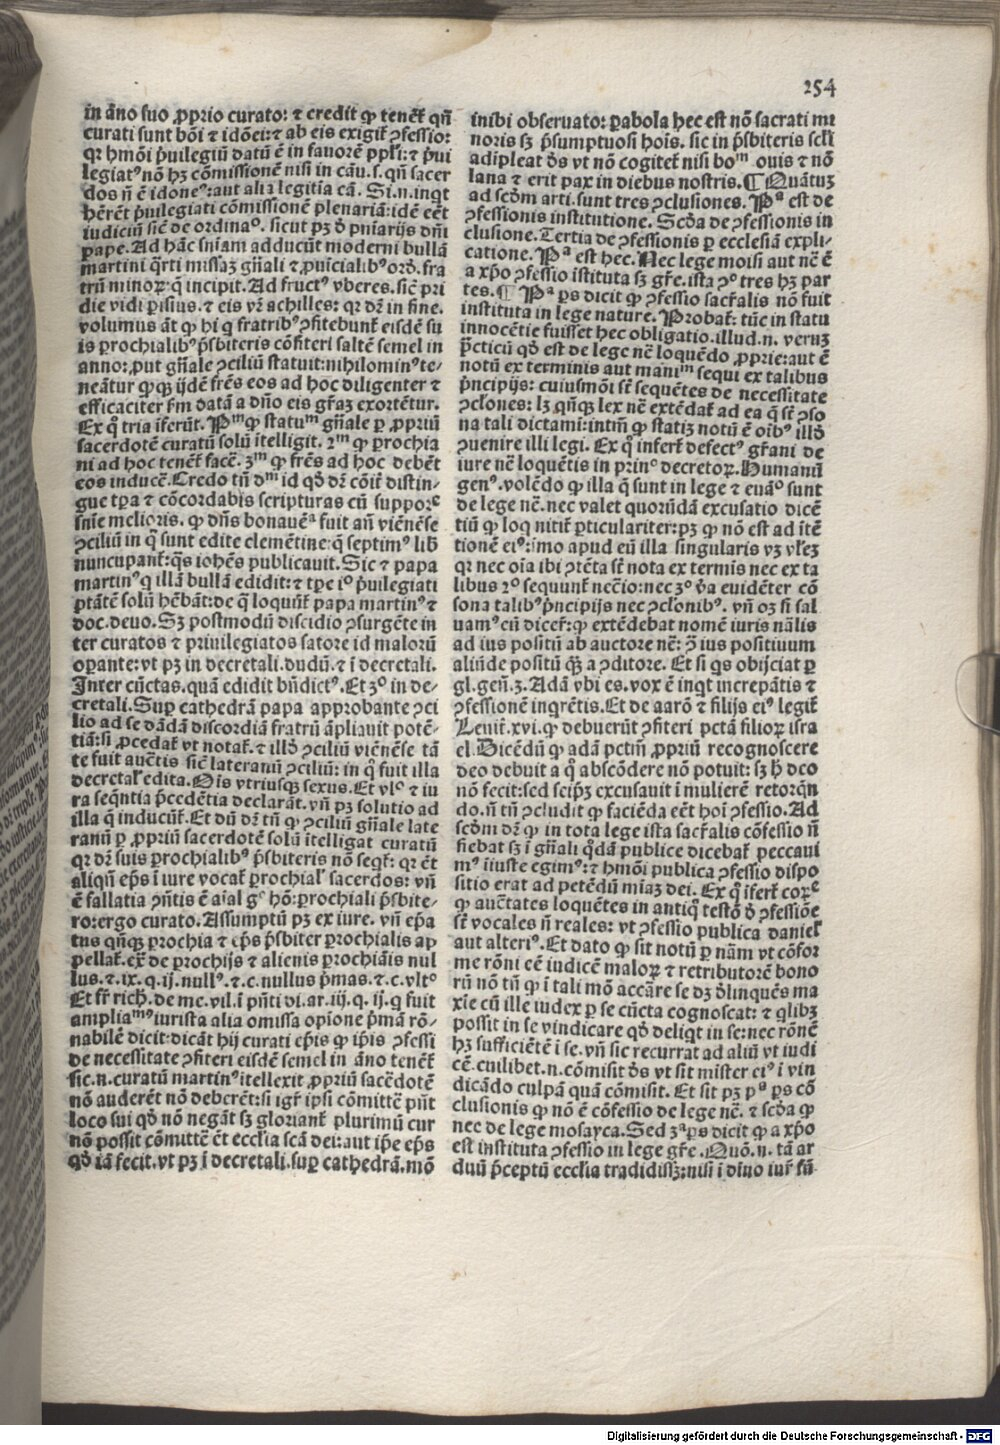 254
in āno suo ꝓprio curato: ⁊ credit ꝙ tenet̄ qn̄
curati sunt bōi ⁊ idōei:⁊ ab eis exigit̄ ꝯfessio:
qꝛ hmōi p̄uilegiū datū ē in fauorē pp̄li:⁊ p̄ui
legiatꝰ nō hꝫ cōmissionē nisi in cāu.s.qn̄ sacer
dos n̄ ē idoneꝰ:aut alia legitīa cā. Si.n.inqt
hērēt p̄uilegiati cōmissionē plenariā:idē eēt
iudiciū sic̄ de ordinaᵒ. sicut pꝫ ð pn̄iarijs dn̄i
pape. Ad hāc sn̄iam adducūt moderni bullā
martini q̄rti missaꝫ gn̄ali ⁊ ꝓuīcialibꝰ ord̄. fra
trū minoꝝ: q̄ incipit. Ad fructꝰ vberes. sic̄ pri
die vidi ꝑisius. ⁊ eis vt̄ achilles: qꝛ dr̄ in fine.
volumus āt ꝙ hi q fratribꝰ ꝯfitebunt̄ eisdē su
is ꝑochialibꝰ p̄sbiteris cōfiteri saltē semel in
anno: ꝓut gn̄ale ꝯciliū statuit: nihilominꝰ te-
neātur ꝙqꝫ ijdē fr̄es eos ad hoc diligenter ⁊
efficaciter ẜm datā a dn̄o eis gr̄aꝫ exortētur.
Ex q̊ tria īferūt. Pᵐꝰ ꝙ statuᵐ gn̄ale ꝑ ꝓpriū
sacerdotē curatū solū ītelligit. 2ᵐ ꝙ ꝑochia
ni ad hoc tenēt̄ facē. 3ᵐ ꝙ fr̄es ad hoc debēt
eos inducē. Credo tn̄ dᵐ id qð dr̄ cōit̄ distin-
gue tꝑa ⁊ cōcordabis scripturas cū suppoꝛᵉ
sn̄ie melioris. ꝙ dn̄s bonauēᵃ fuit an̄ viēnēse
ꝯciliū in q̊ sunt edite clemētine: q̄ septimꝰ lib̄
nuncupant̄: q̄s iohēs publicauit. Sic ⁊ papa
martinꝰ q illā bullā edidit: ⁊ tꝑe iᵒ p̄uilegiati
ptātē solū hēbāt: de q̄ loquūt̄ papa martinꝰ ⁊
doc. deuo. Sꝫ postmodū discidio ꝯsurgēte in
ter curatos ⁊ priuilegiatos satore id malorū
oꝑante: vt pꝫ in decretali. dudū. ⁊ ī decretali.
Inter cūctas. quā edidit bn̄dictꝰ. Et 3ᵒ in de-
cretali. Suꝑ cathedrā papa approbante ꝯci
lio ad se dādā discordiā fratrū āpliauit potē-
tiā: si ꝓcedat̄ vt notat̄. ⁊ illð ꝯciliū viēnēse tā
te fuit auc̄tis sic̄ lateranū ꝯciliū: in q̊ fuit illa
decretal̄ edita. Oīs vtriusqꝫ sexus. Et vlᵒ ⁊ iu
ra seq̄ntia p̄cedētia declarāt. vn̄ pꝫ solutio ad
illa q̄ inducūt̄. Et dū dr̄ tn̄ ꝙ ꝯciliū gn̄ale late
ranū ꝑ ꝓpriū sacerdotē solū ītelligat curatū
qꝛ dr̄ suis ꝑochialibꝰ p̄sbiteris nō seqt̄: qꝛ ēt
aliqn̄ ep̄s ī iure vocat̄ ꝑochial̄ sacerdos: vn̄
ē fallatia ꝯn̄tis ē aīal gᵒ hō: ꝑochiali p̄sbite-
ro: ergo curato. Assumptū pꝫ ex iure. vn̄ ep̄a
tus qn̄qꝫ ꝑochia ⁊ ep̄s p̄sbiter ꝑochialis ap
pellat̄. ex̄ de ꝑochijs ⁊ alienis ꝑochiāis nul
lus. ⁊. ix. q. ij. nullꝰ. ⁊. c. nullus p̄mas. ⁊. c. vltᵒ
Et fr̄ rich̄. de me. vil. ī pn̄ti di. ar. iij. q. ij. q fuit
ampliaᵐꝰ iurista alia omissa opīone p̄mā rō-
nabilē dicit: dicāt hij curati ep̄is ꝙ ip̄is ꝯfessi
de necessitate ꝯfiteri eisdē semel in āno tenēt̄
sic. n. curatū martinꝰ ītellexit ꝓpriū sacēdotē
nō auderēt nō deberēt: si igr̄ ip̄si cōmittē pn̄t
loco sui qð nō negāt sꝫ gloriant̄ plurimū cur
nō possit cōmuttē ēt eccl̄ia scā dei: aut ip̄e ep̄s
qð iā fecit. vt pꝫ ī decretali. suꝑ cathedrā. mō
inibi obseruato: ꝑabola hec est nō sacrati mi
noris sꝫ p̄sumptuosi hoīs. sic in p̄sbiteris scl̄i
adīpleat ðs vt nō cogitet̄ nisi boᵐ ouis ⁊ nō
lana ⁊ erit pax in diebus nostris. ¶ Quātuꝫ
ad scðm arti. sunt tres ꝯclusiones. Pᵃ est de
ꝯfessionis institutione. Scða de ꝯfessionis in
clusione. Tertia de ꝯfessionis ꝑ ecclesiā expli-
catione. Pᵃ est hec. Nec lege moisi aut nē ē
a xp̄o ꝯfessio īstituta sꝫ gr̄e. ista ꝯᵒ tres hꝫ par
tes. ¶ Pᵃ ꝑs dicit ꝙ ꝯfessio sacr̄alis nō fuit
instituta in lege nature. Probat̄: tūc in statu
innocētie fuisset hec obligatio. illud. n. veruꝫ
p̄cticū qð est de lege nē loquēdo ꝓprie: aut ē
notū ex terminis aut maniᵐ sequi ex talibus
p̄ncipijs: cuiusmōi sūt sequētes de necessitate
ꝯclōnes: lꝫ qn̄qꝫ lex nē extēdat̄ ad ea q̄ st̄ ꝯso
na tali dictami: intm̄ ꝙ statiꝫ notū ē oībꝰ illð
ꝯuenire illi legi. Ex q̊ infert̄ defectꝰ gr̄ani de
iure nē loquētis in prinᶜ decretoꝝ. Humanū
genꝰ. volēdo ꝙ illa q̄ sunt in lege ⁊ euāᵒ sunt
de lege nē. nec valet quorūdā excusatio dicē
tiū ꝙ loq nitit̄ ꝑticulariter: pꝫ ꝙ nō est ad ītē
tionē eiꝰ: imo apud eū illa singularis vꝫ vl̄eꝫ
qꝛ nec oīa ibi ꝯtēta st̄ nota ex termīs nec ex ta
libus 2ᵒ sequunt̄ necīo: nec 3ᵒ v̄a euidēter cō
sona talibꝰ p̄ncipijs nec ꝯclōnibꝰ. vn̄ oꝫ si sal
uamꝰ eū dicet̄: ꝙ extēdebat nomē iuris nālis
ad ius positū ab auctore nē: ꝯ̄ ius positiuum
aliūde positū qꝫ a ꝯditore. Et si qs obijciat ꝑ
gl. gen̄. 3. Adā vbi es. vox ē inqt increpātis ⁊
ꝯfessionē inqrētis. Et de aarō ⁊ filijs eiꝰ legit̄
Leuit̄. xvi. ꝙ debuerūt ꝯfiteri pctā filioꝝ isra
el. Dicēdū ꝙ adā pctm̄ ꝓpriū recognoscere
deo debuit a q̊ abscōdere nō potuit: sꝫ h̄ deo
nō fecit: sed seipꝫ excusauit ī mulierē retorqn
do. n̄ tn̄ ꝯcludit ꝙ faciēda eēt hoī ꝯfessio. Ad
scðm dr̄ ꝙ in tota lege ista sacr̄alis cōfessio n̄
fiebat sꝫ ī gn̄ali q̊dā publice dicebat̄ peccaui
mꝰ īiuste egimꝰ: ⁊ hmōi publica ꝯfessio dispo
sitio erat ad petēdū mīaꝫ dei. Ex q̊ īfert̄ coꝛᵉ
ꝙ auc̄tates loquētes in antiq̊ testō ð ꝯfessiōe
st̄ vocales n̄ reales: vt ꝯfessio publica daniel̄
aut alteriꝰ. Et dato ꝙ sit notū ꝑ nām vt cōfor
me rōni eē iudicē maloꝝ ⁊ retributorē bono
rū nō tn̄ ꝙ ī tali mō accāre se dꝫ ðlinquēs ma
xīe cū ille iudex ꝑ se cūcta cognoscat: ⁊ qlibꝫ
possit in se vindicare qð deliqt in se: nec rōnē
hꝫ sufficiētē ī se. vn̄ sic recurrat ad aliū vt iudi
cē. cuilibet. n. cōmisit ðs vt sit mister eiꝰ ī vin
dicādo culpā quā cōmisit. Et sit pꝫ pᵃ ꝑs cō
clusionis ꝙ nō ē cōfessio de lege nē. ⁊ scða ꝙ
nec de lege mosayca. Sed 3ᵃ ꝑs dicit ꝙ a xp̄o
est instituta ꝯfessio in lege gr̄e. Quō. n. tā ar
duū p̄ceptū eccl̄ia tradidissꝫ: nisi ī diuo iur̄ fū
Digitalisierung gefördert durch die Deutsche Forschungsgemeinschaft - DFG